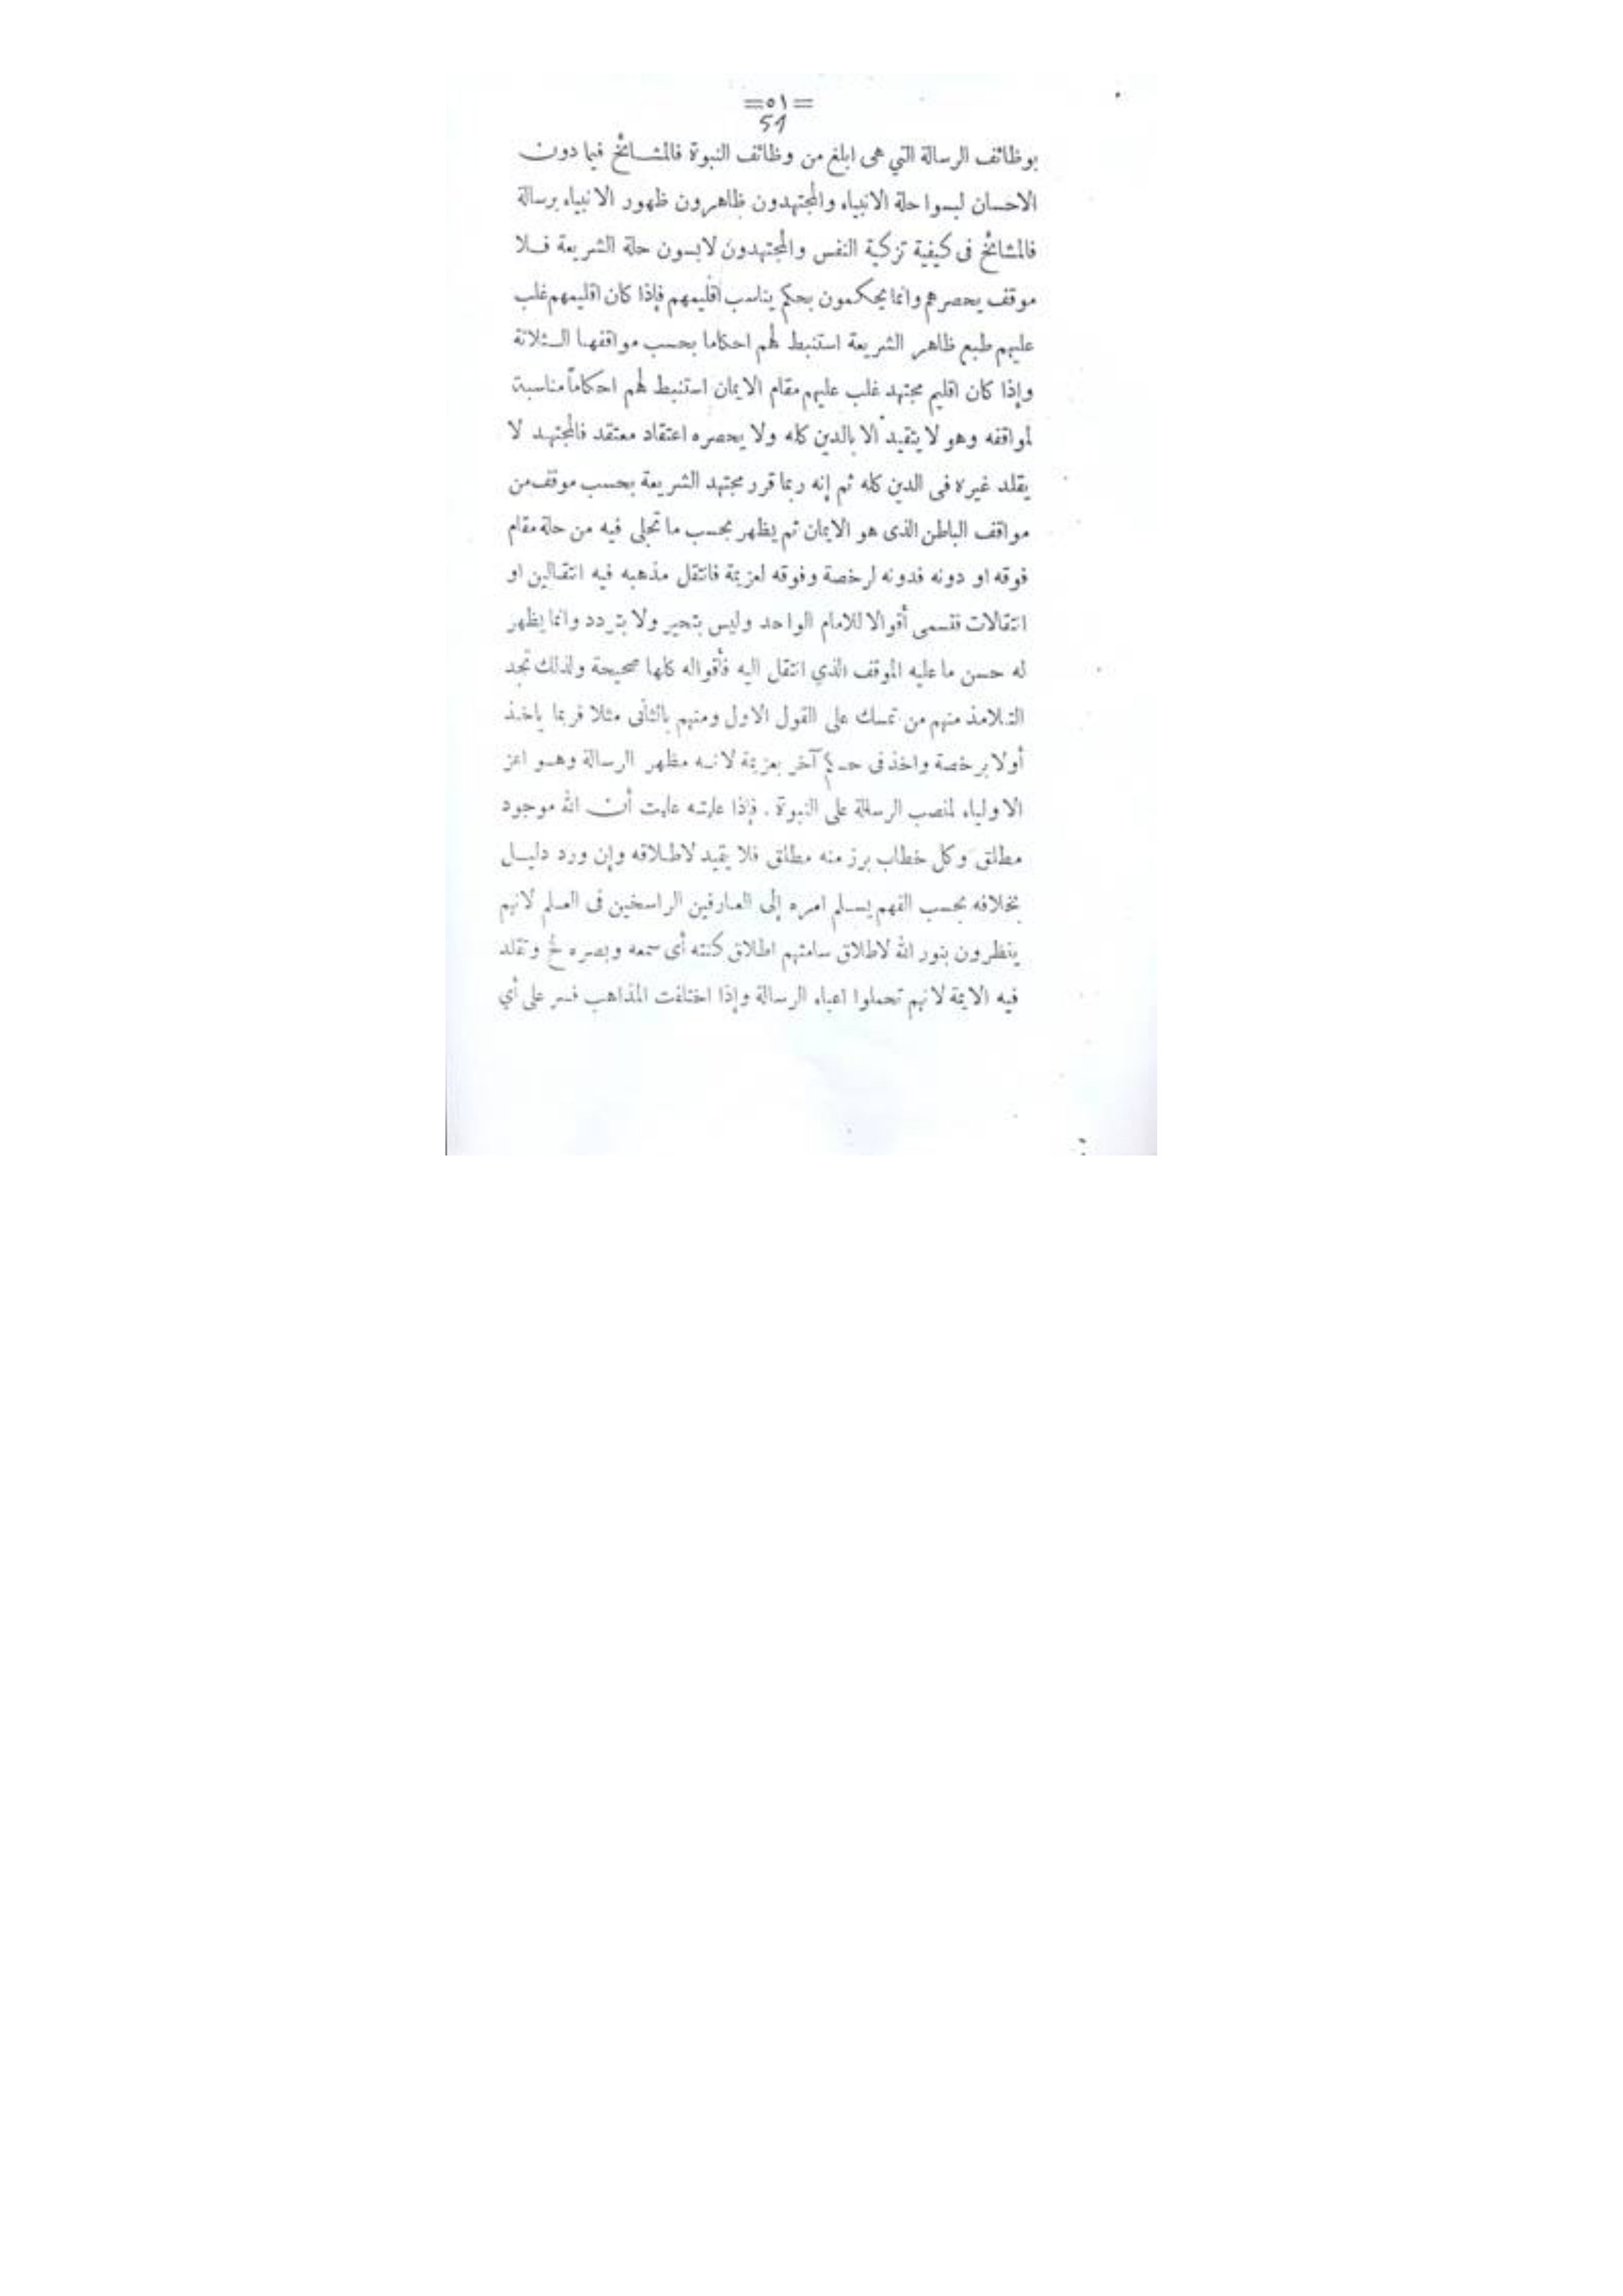 =٥١=
51
بوظائف الرسالة التي هى ابلغ من وظائف النبوة فالمشـائخ فيما دون
الاحسان لبسوا حلة الانبياء والمجتهدون ظاهرون ظهور الانبياء برسالة
فالمشائخ فى كيفية تزكية النفس والمجتهدون لابسون حلة الشريعة فـلا
موقف يحصرهم وانما يحكمون بحكم يناسب اقليمهم فإذا كان اقليمهم غلب
عليهم طبع ظاهر الشريعة استنبط لهم احكاما بحسب مواقفهـا الـثلاثة
وإذا كان اقليم مجتهد غلب عليهم مقام الايمان استنبط لهم احكاماً مناسبة
لمواقفه وهو لا يتقيد الا بالدين كله ولا يحصره اعتقاد معتقد فالمجتهـد لا
يقلد غيره فى الدين كله ثم إنه ربما قرر مجتهد الشريعة بحسب موقف من
مواقف الباطن الذى هو الايمان ثم يظهر بحسب ما تجلى فيه من حلة مقام
فوقه او دونه فدونه لرخصة وفوقه لعزيمة فانتقل مذهبه فيه انتقـالين او
انتقالات فتسمى أقوالا للامام الواحد وليس بتحير ولا بتردد وانما يظهر
له حسن ما عليه الموقف الذي انتقل اليه فأقواله كلها صحيحة ولذلك تجد
التـلامذ منهم من تمسك على القول الاول ومنهم بالثانى مثلا فربما ياخـذ
أولا برخصة واخذ فى آخر بعزيمة لانـه مظهر الرسالة وهـو اعز
الاولياء لمنصب الرسالة على النبوة . فإذا علمته علمت أن الله موجود
مطلق وكل خطاب برز منه مطلق فلا يقيد لاطـلاقه وإن ورد دليـل
بخلافه بحسب الفهم يسـلم امره إلى العـارفين الراسخين فى العـلم لانهم
ينظرون بنور الله لاطلاق سامتهم اطلاق كنته أى سمعه وبصره لخ وتقلد
فيه الايمة لانهم تحملوا اعباء الرسالة وإذا اختلفت المذاهب فسر على أي